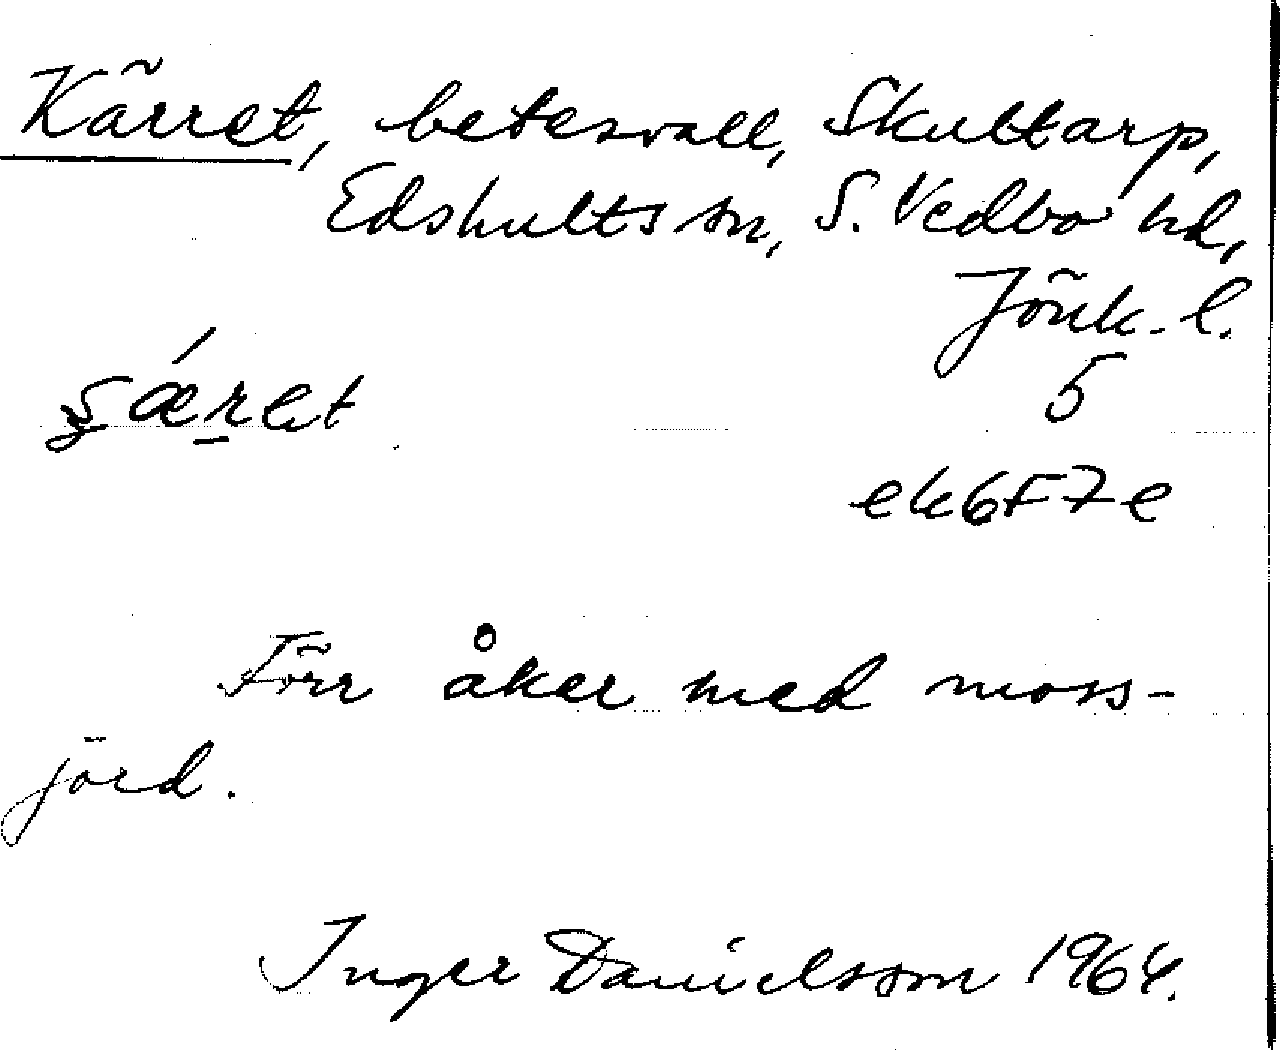 Kärret, betesvall, Skuttarp,
Edshults sn, S. Vedbo hd,
Jönk. l.
ʂǽr̲et 5
ek6F7e
Förr åker med moss-
jord.
Inger Danielsson 1964.